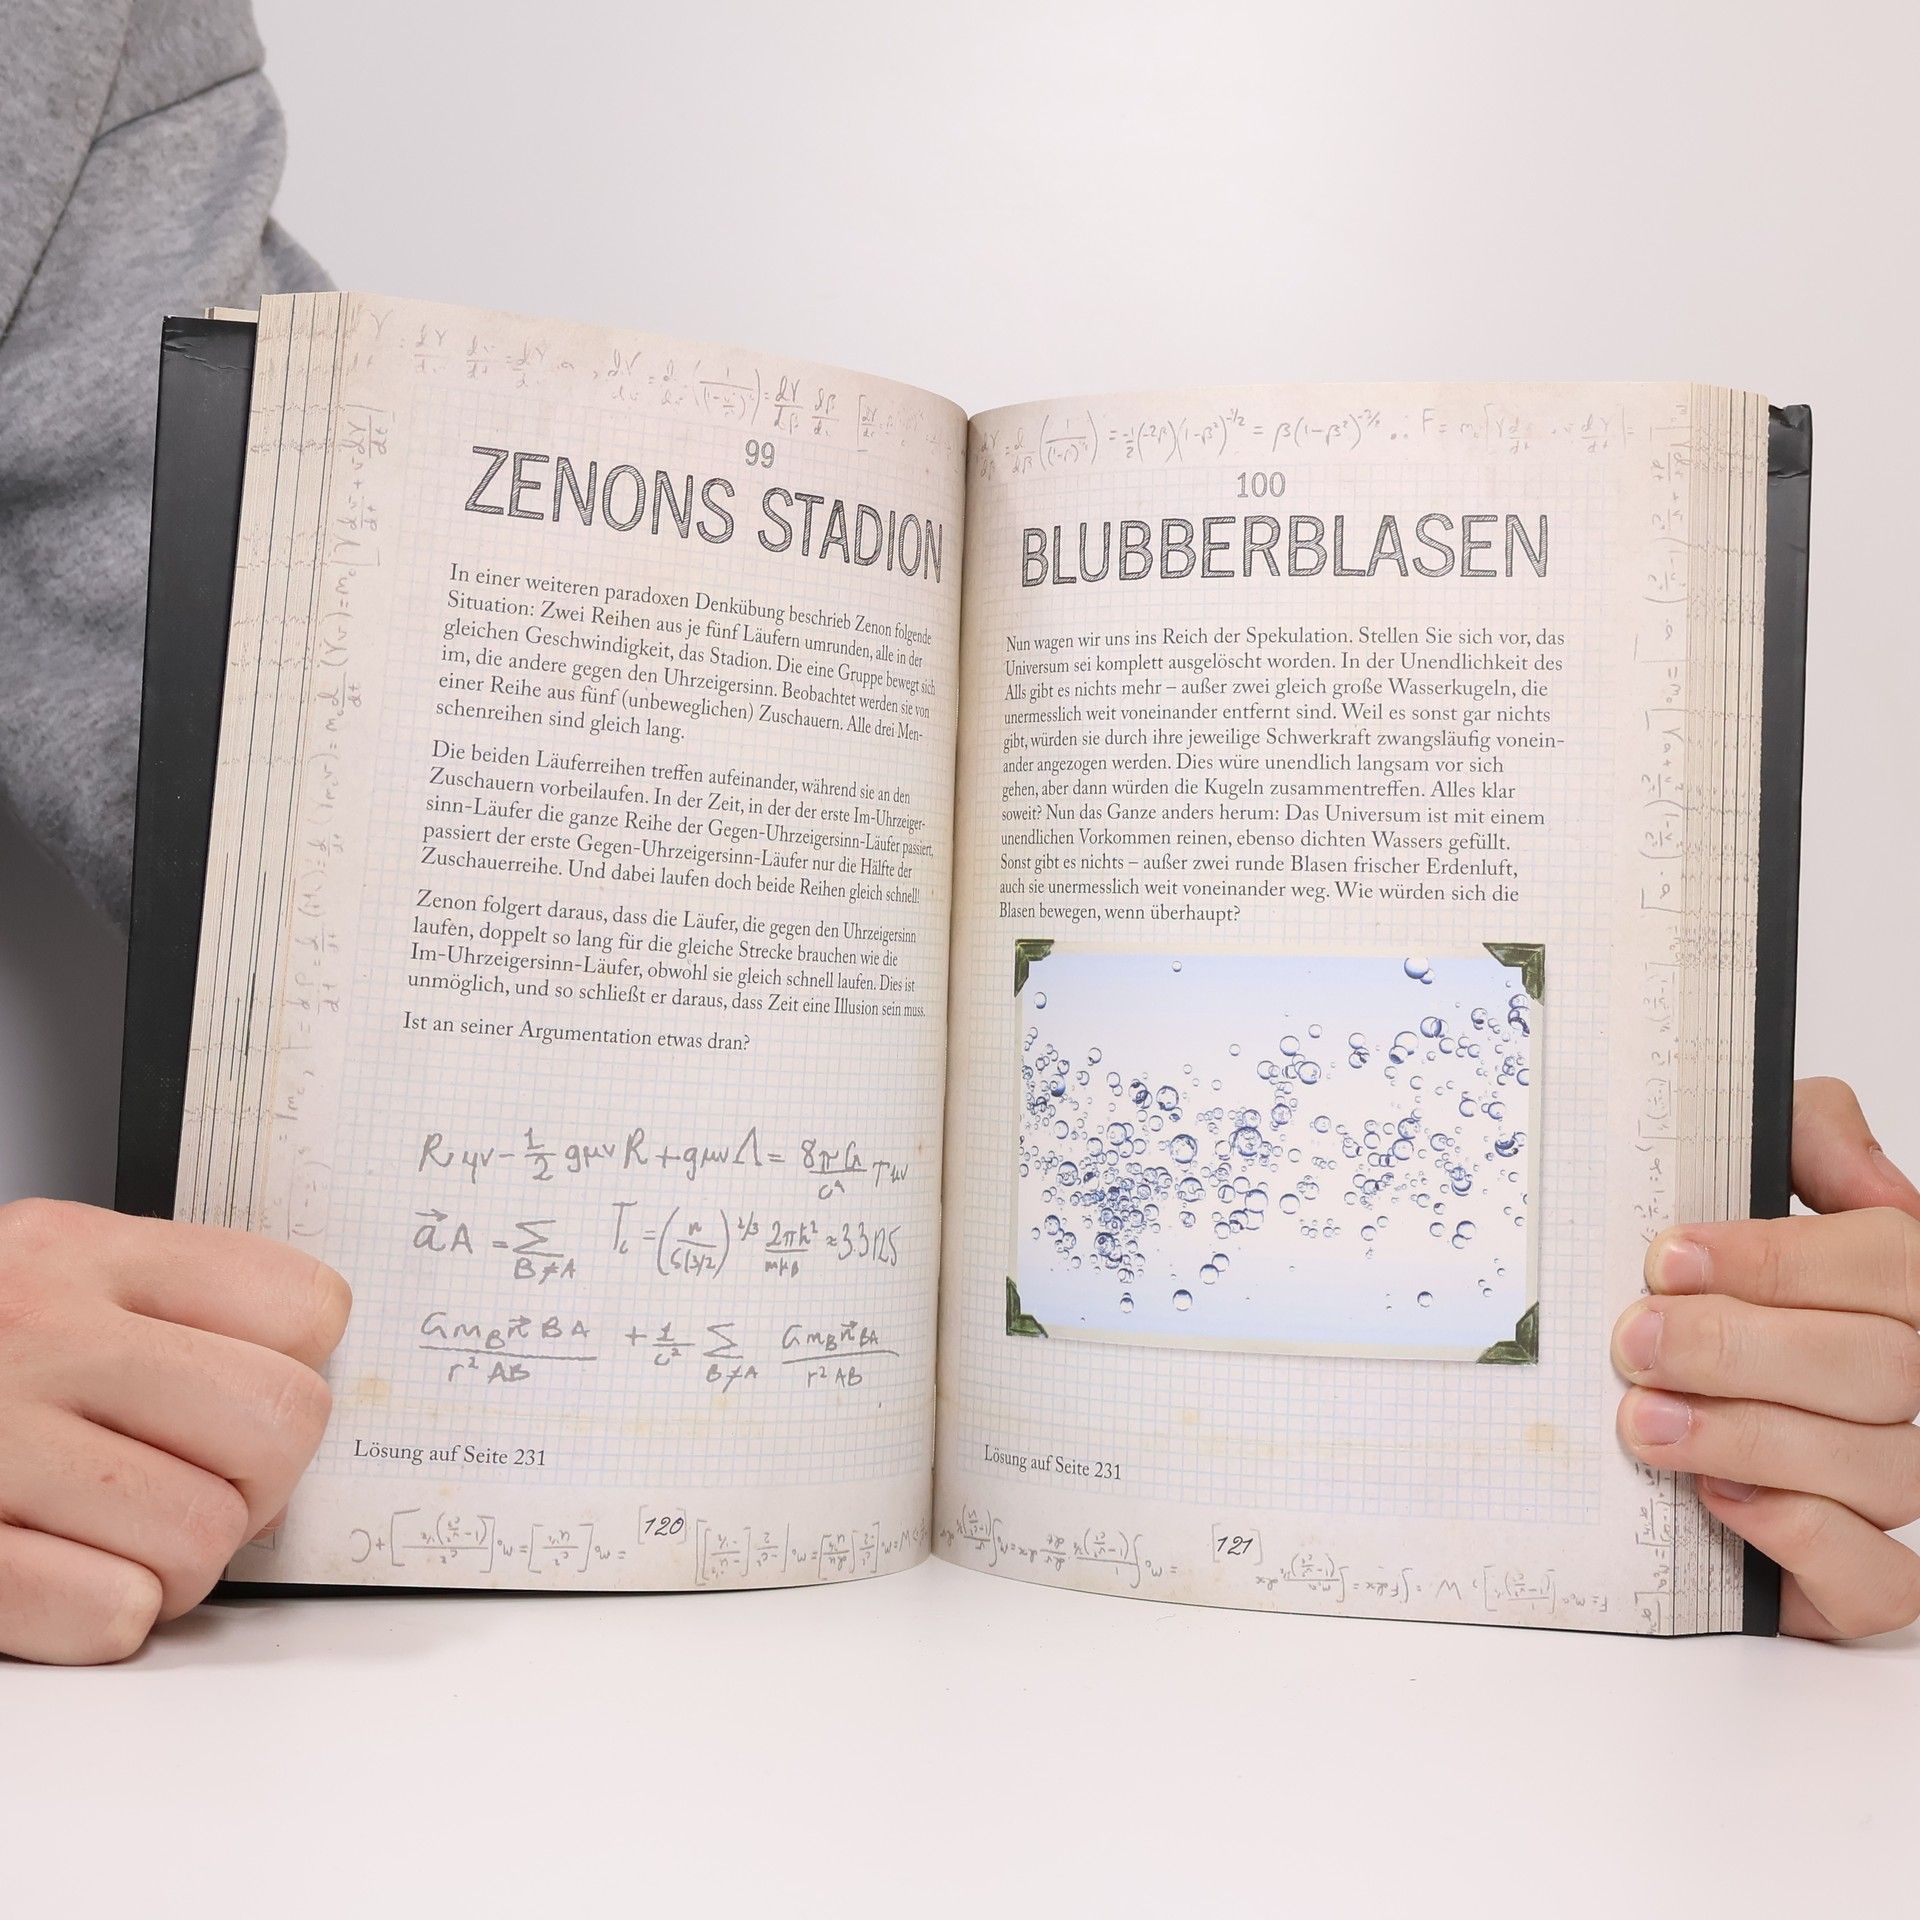 99
ZENONS STADION
In einer weiteren paradoxen Denkübung beschrieb Zenon folgende
Situation: Zwei Reihen aus je fünf Läufern umrunden, alle in der
gleichen Geschwindigkeit, das Stadion. Die eine Gruppe bewegt sich
im, die andere gegen den Uhrzeigersinn. Beobachtet werden sie von
einer Reihe aus fünf (unbeweglichen) Zuschauern. Alle drei Men-
schenreihen sind gleich lang.
Die beiden Läuferreihen treffen aufeinander, während sie an den
Zuschauern vorbeilaufen. In der Zeit, in der der erste Im-Uhrzeiger-
sinn-Läufer die ganze Reihe der Gegen-Uhrzeigersinn-Läufer passiert,
passiert der erste Gegen-Uhrzeigersinn-Läufer nur die Hälfte der
Zuschauerreihe. Und dabei laufen doch beide Reihen gleich schnell!
Zenon folgert daraus, dass die Läufer, die gegen den Uhrzeigersinn
laufen, doppelt so lang für die gleiche Strecke brauchen wie die
Im-Uhrzeigersinn-Läufer, obwohl sie gleich schnell laufen. Dies ist
unmöglich, und so schließt er daraus, dass Zeit eine Illusion sein muss.
Ist an seiner Argumentation etwas dran?
Lösung auf Seite 231
[120]
100
BLUBBERBLASEN
Nun wagen wir uns ins Reich der Spekulation. Stellen Sie sich vor, das
Universum sei komplett ausgelöscht worden. In der Unendlichkeit des
Alls gibt es nichts mehr – außer zwei gleich große Wasserkugeln, die
unermesslich weit voneinander entfernt sind. Weil es sonst gar nichts
gibt, würden sie durch ihre jeweilige Schwerkraft zwangsläufig vonein-
ander angezogen werden. Dies würe unendlich langsam vor sich
gehen, aber dann würden die Kugeln zusammentreffen. Alles klar
soweit? Nun das Ganze anders herum: Das Universum ist mit einem
unendlichen Vorkommen reinen, ebenso dichten Wassers gefüllt.
Sonst gibt es nichts – außer zwei runde Blasen frischer Erdenluft,
auch sie unermesslich weit voneinander weg. Wie würden sich die
Blasen bewegen, wenn überhaupt?
Lösung auf Seite 231
[121]